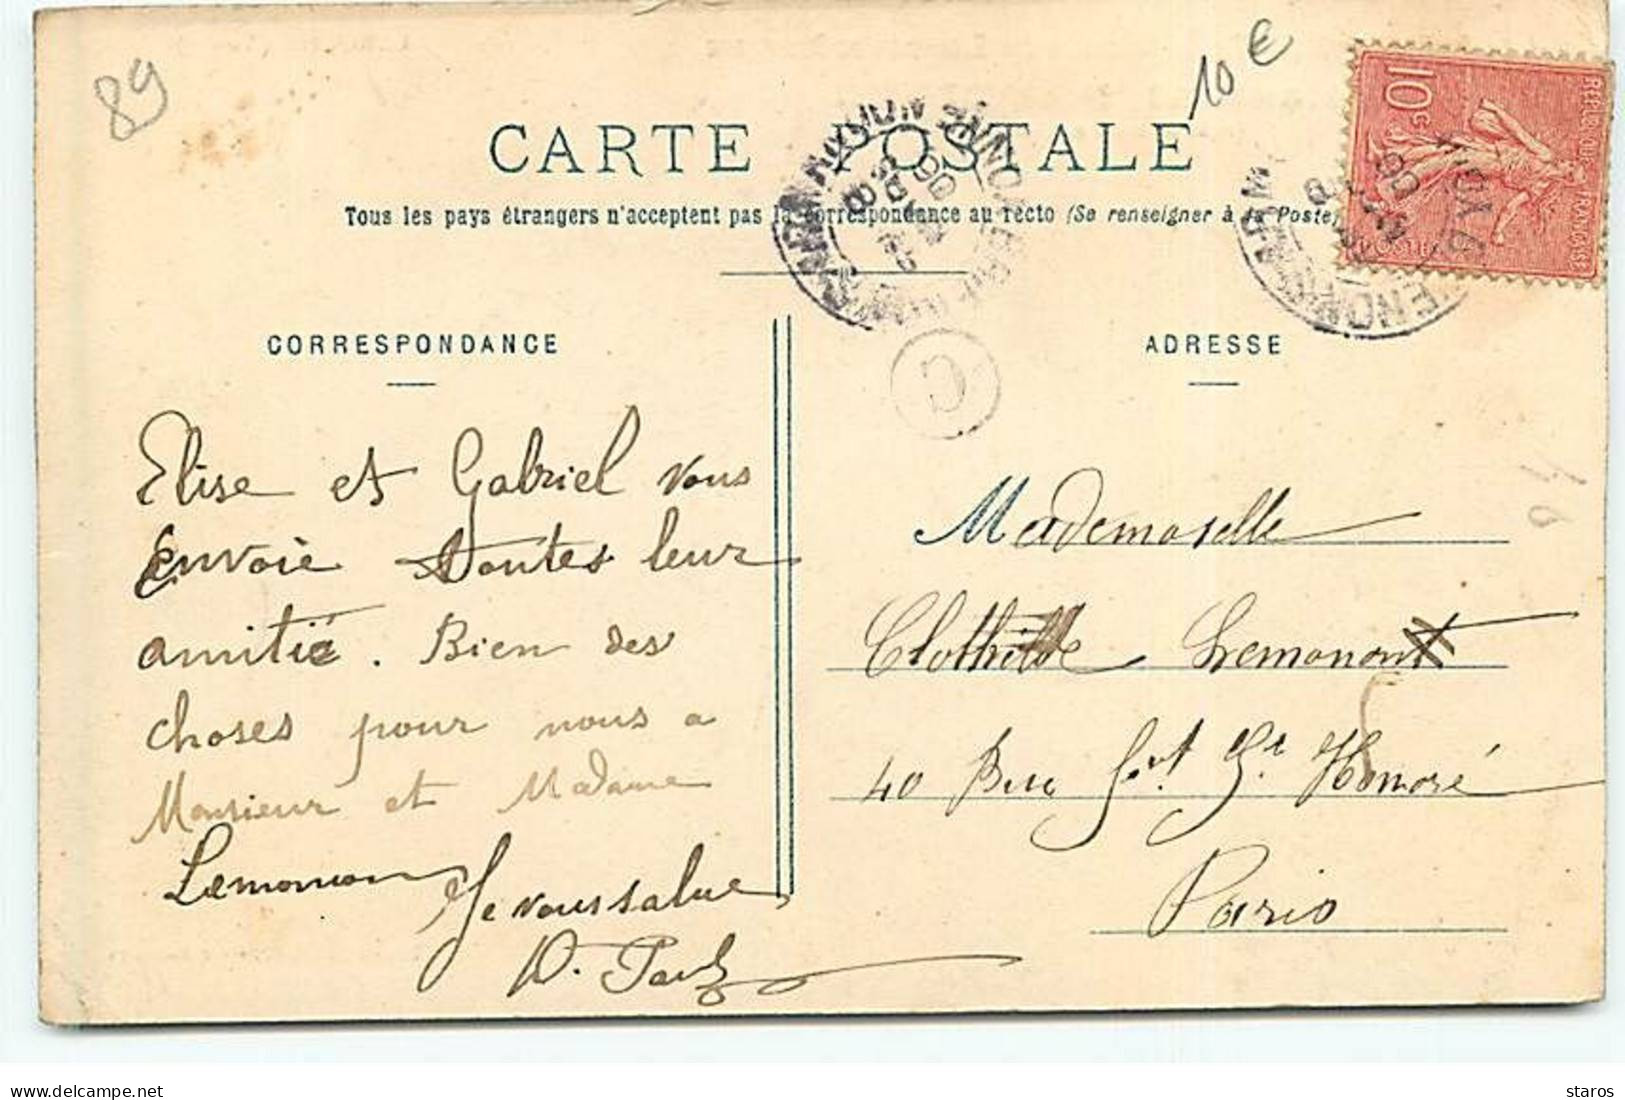 89
10 €
CARTE POSTALE
Tous les pays étrangers n'acceptent pas la correspondance au recto (Se renseigner à la Poste)
10c
CORRESPONDANCE
ADRESSE
C
Elise et Gabriel vous
envoie toutes leur
amitié. Bien des
choses pour nous a
Monsieur et Madame
Lemonon
Je vous salue
Mademoiselle
Clothilde Lemonon
40 Rue St Honoré
Paris
staros